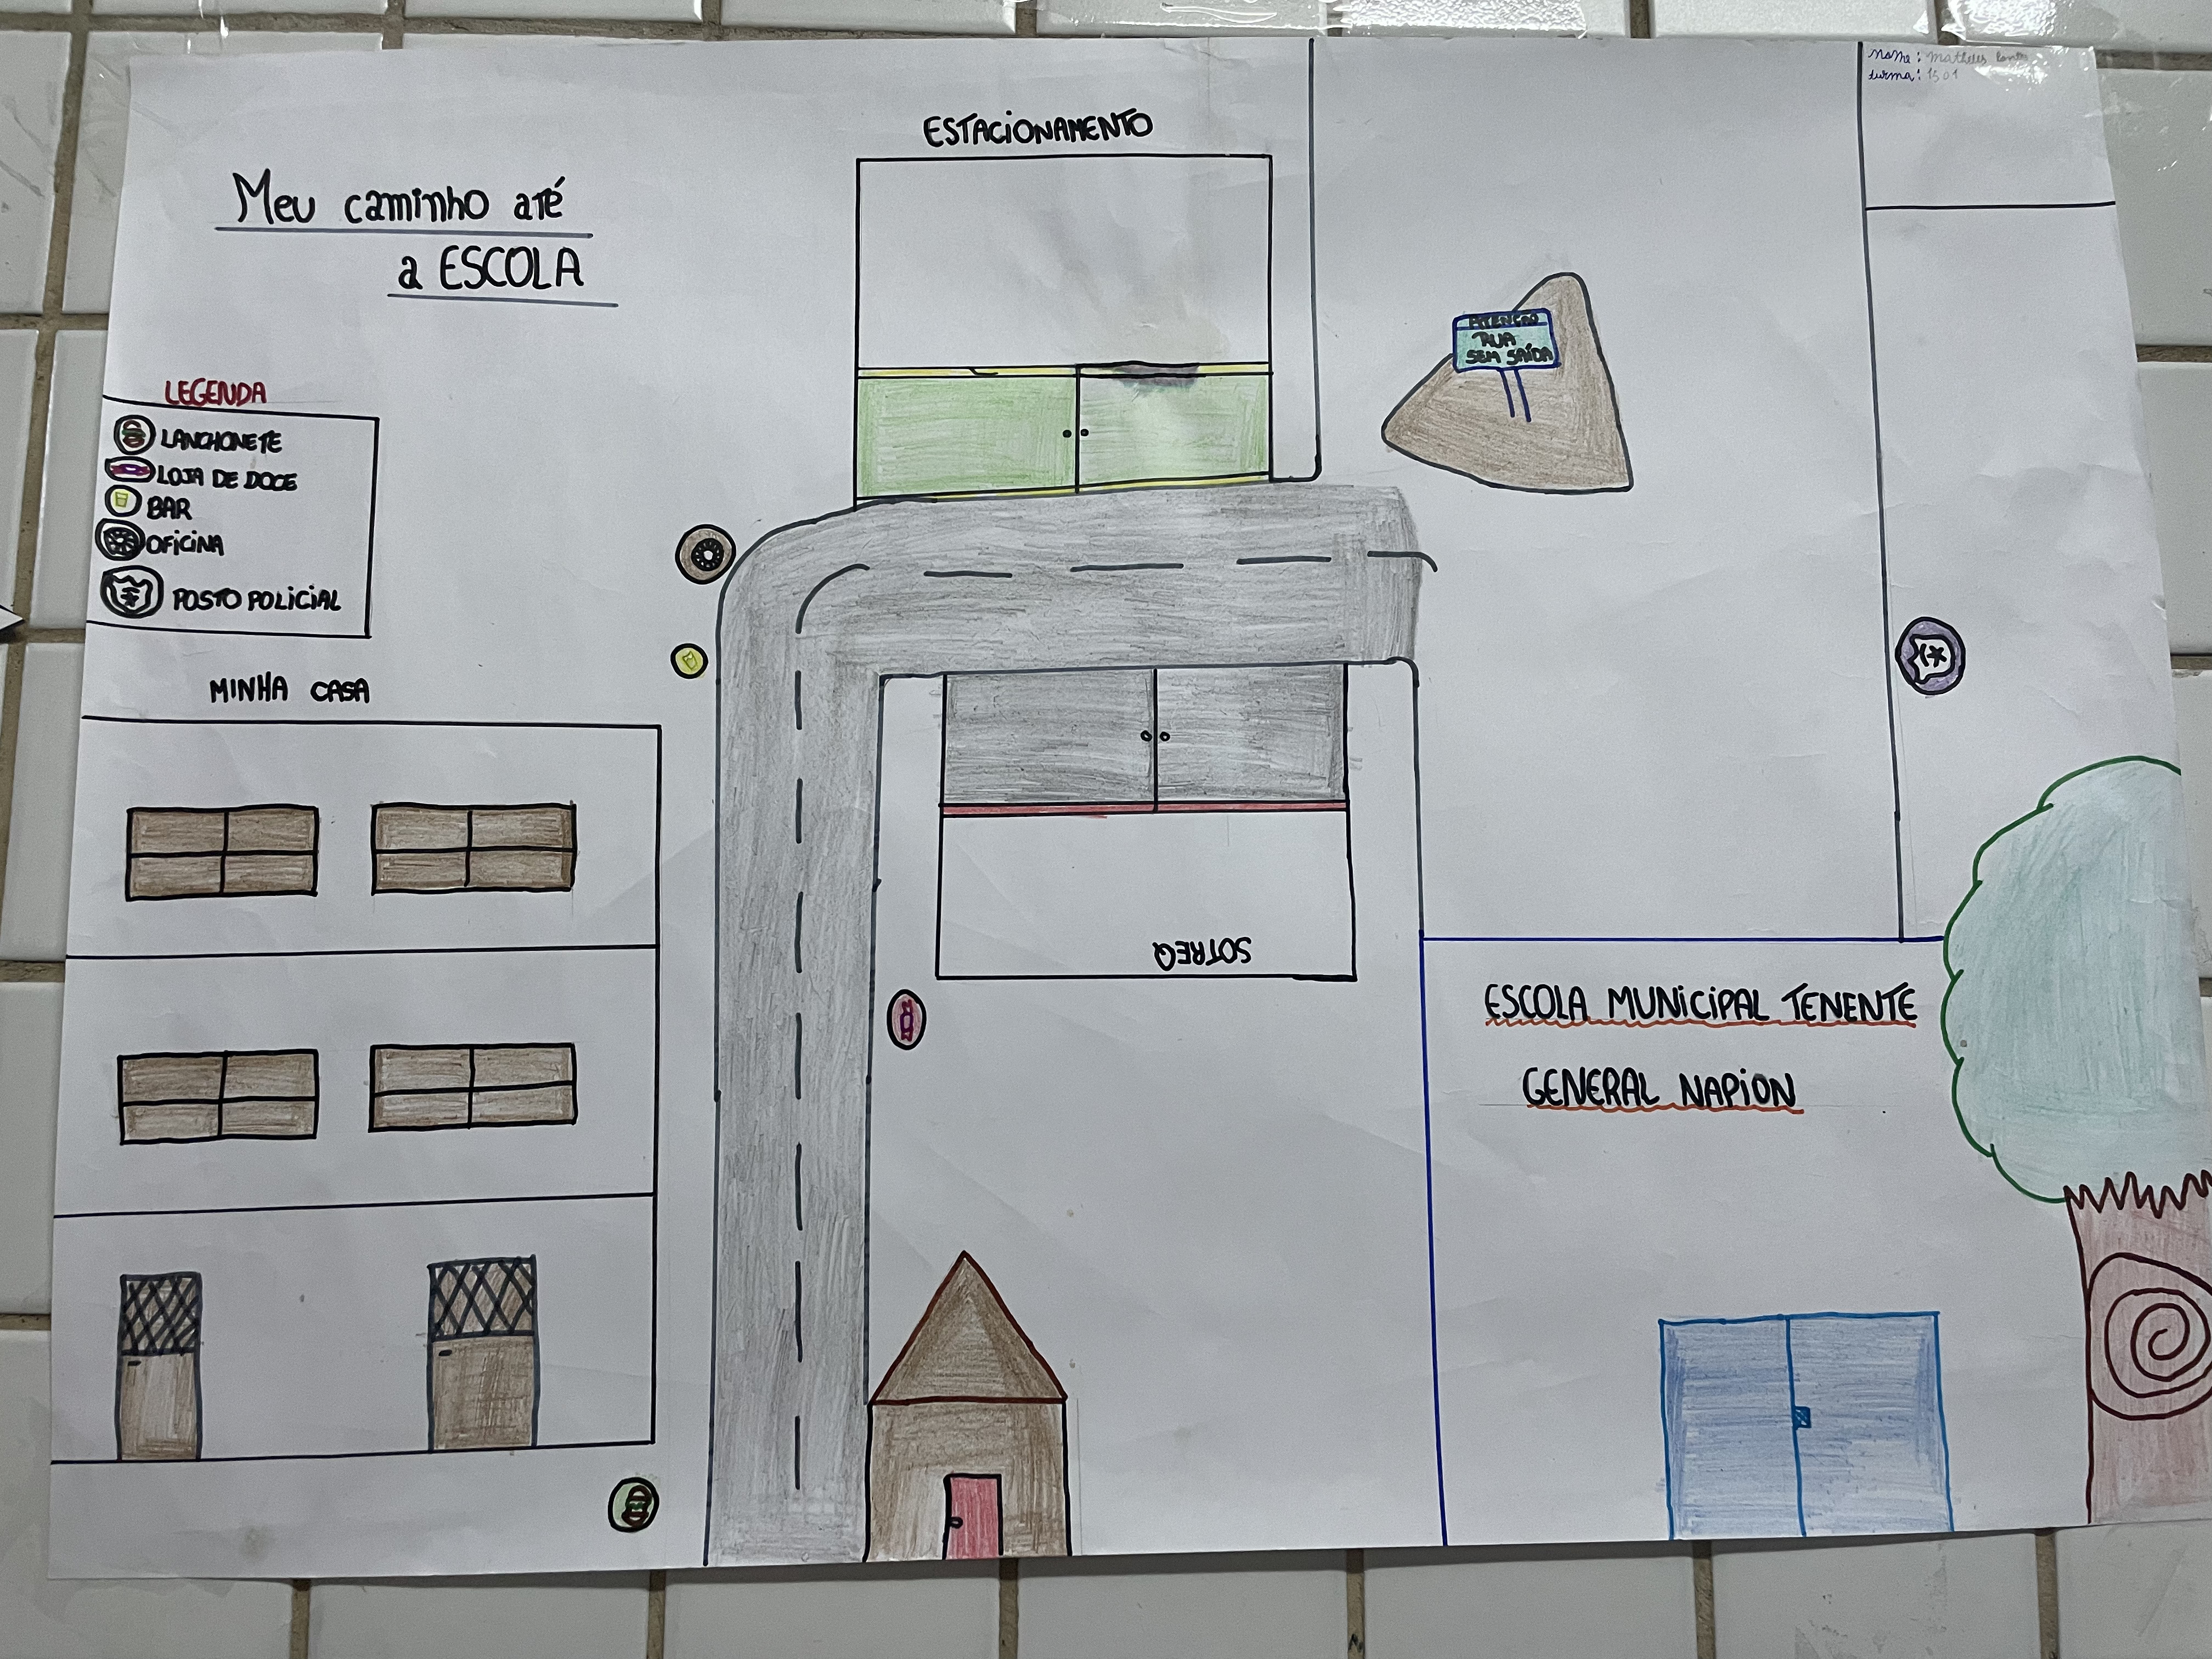 Nome: Matheus
turma: 1501
ESTACIONAMENTO
Meu caminho até
a ESCOLA
ATENÇÃO
RUA
SEM SAÍDA
LEGENDA
LANCHONETE
LOJA DE DOCE
BAR
OFICINA
POSTO POLICIAL
MINHA CASA
SOTREQ
ESCOLA MUNICIPAL TENENTE
GENERAL NAPION